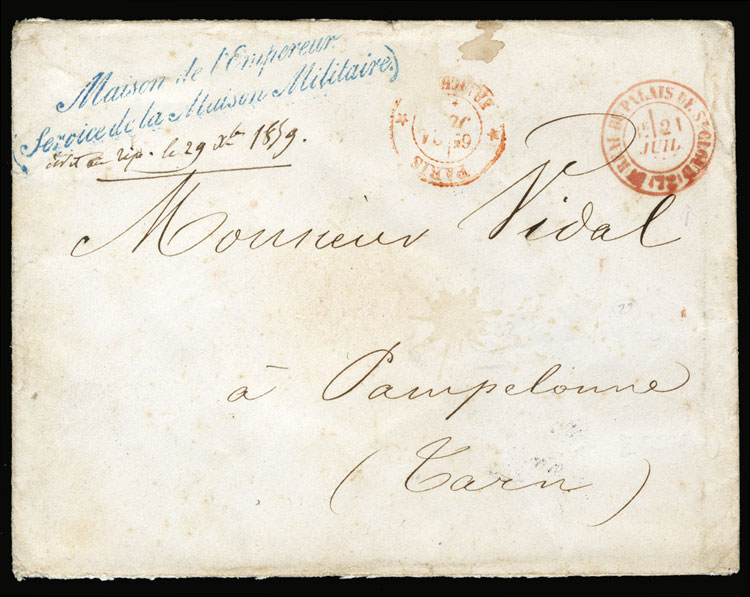 Maison de l'Empereur
(Service de la Maison Militaire)
le 29 Xbre 1859.
PARIS
PALAIS DE St CLOUD
21
JUIL.
Monsieur Vidal
à Pampelonne
(Tarn)